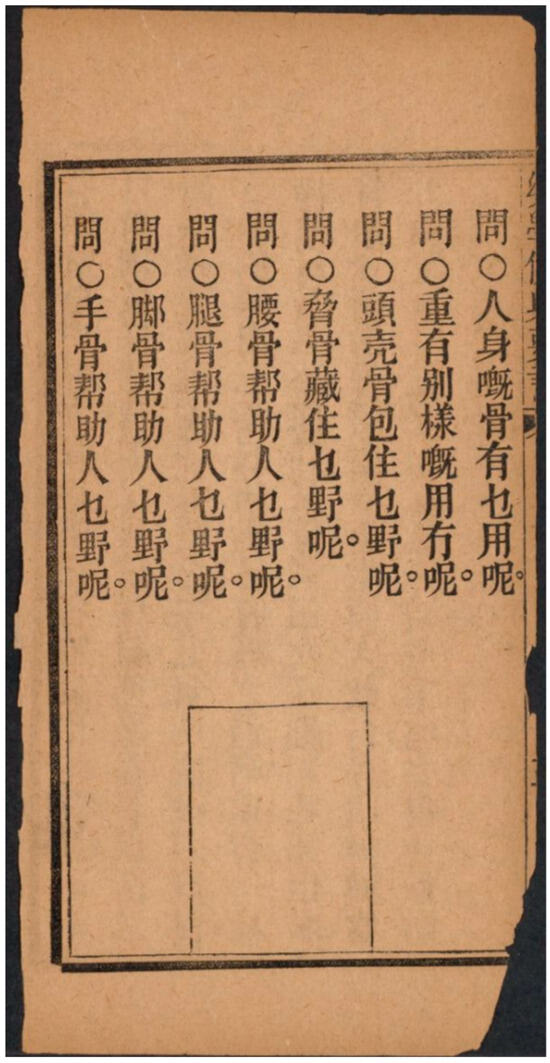 問○人身嘅骨有乜用呢。
問○重有別樣嘅用冇呢。
問○頭壳骨包住乜野呢。
問○脅骨藏住乜野呢。
問○腰骨帮助人乜野呢。
問○腿骨帮助人乜野呢。
問○脚骨帮助人乜野呢。
問○手骨帮助人乜野呢。